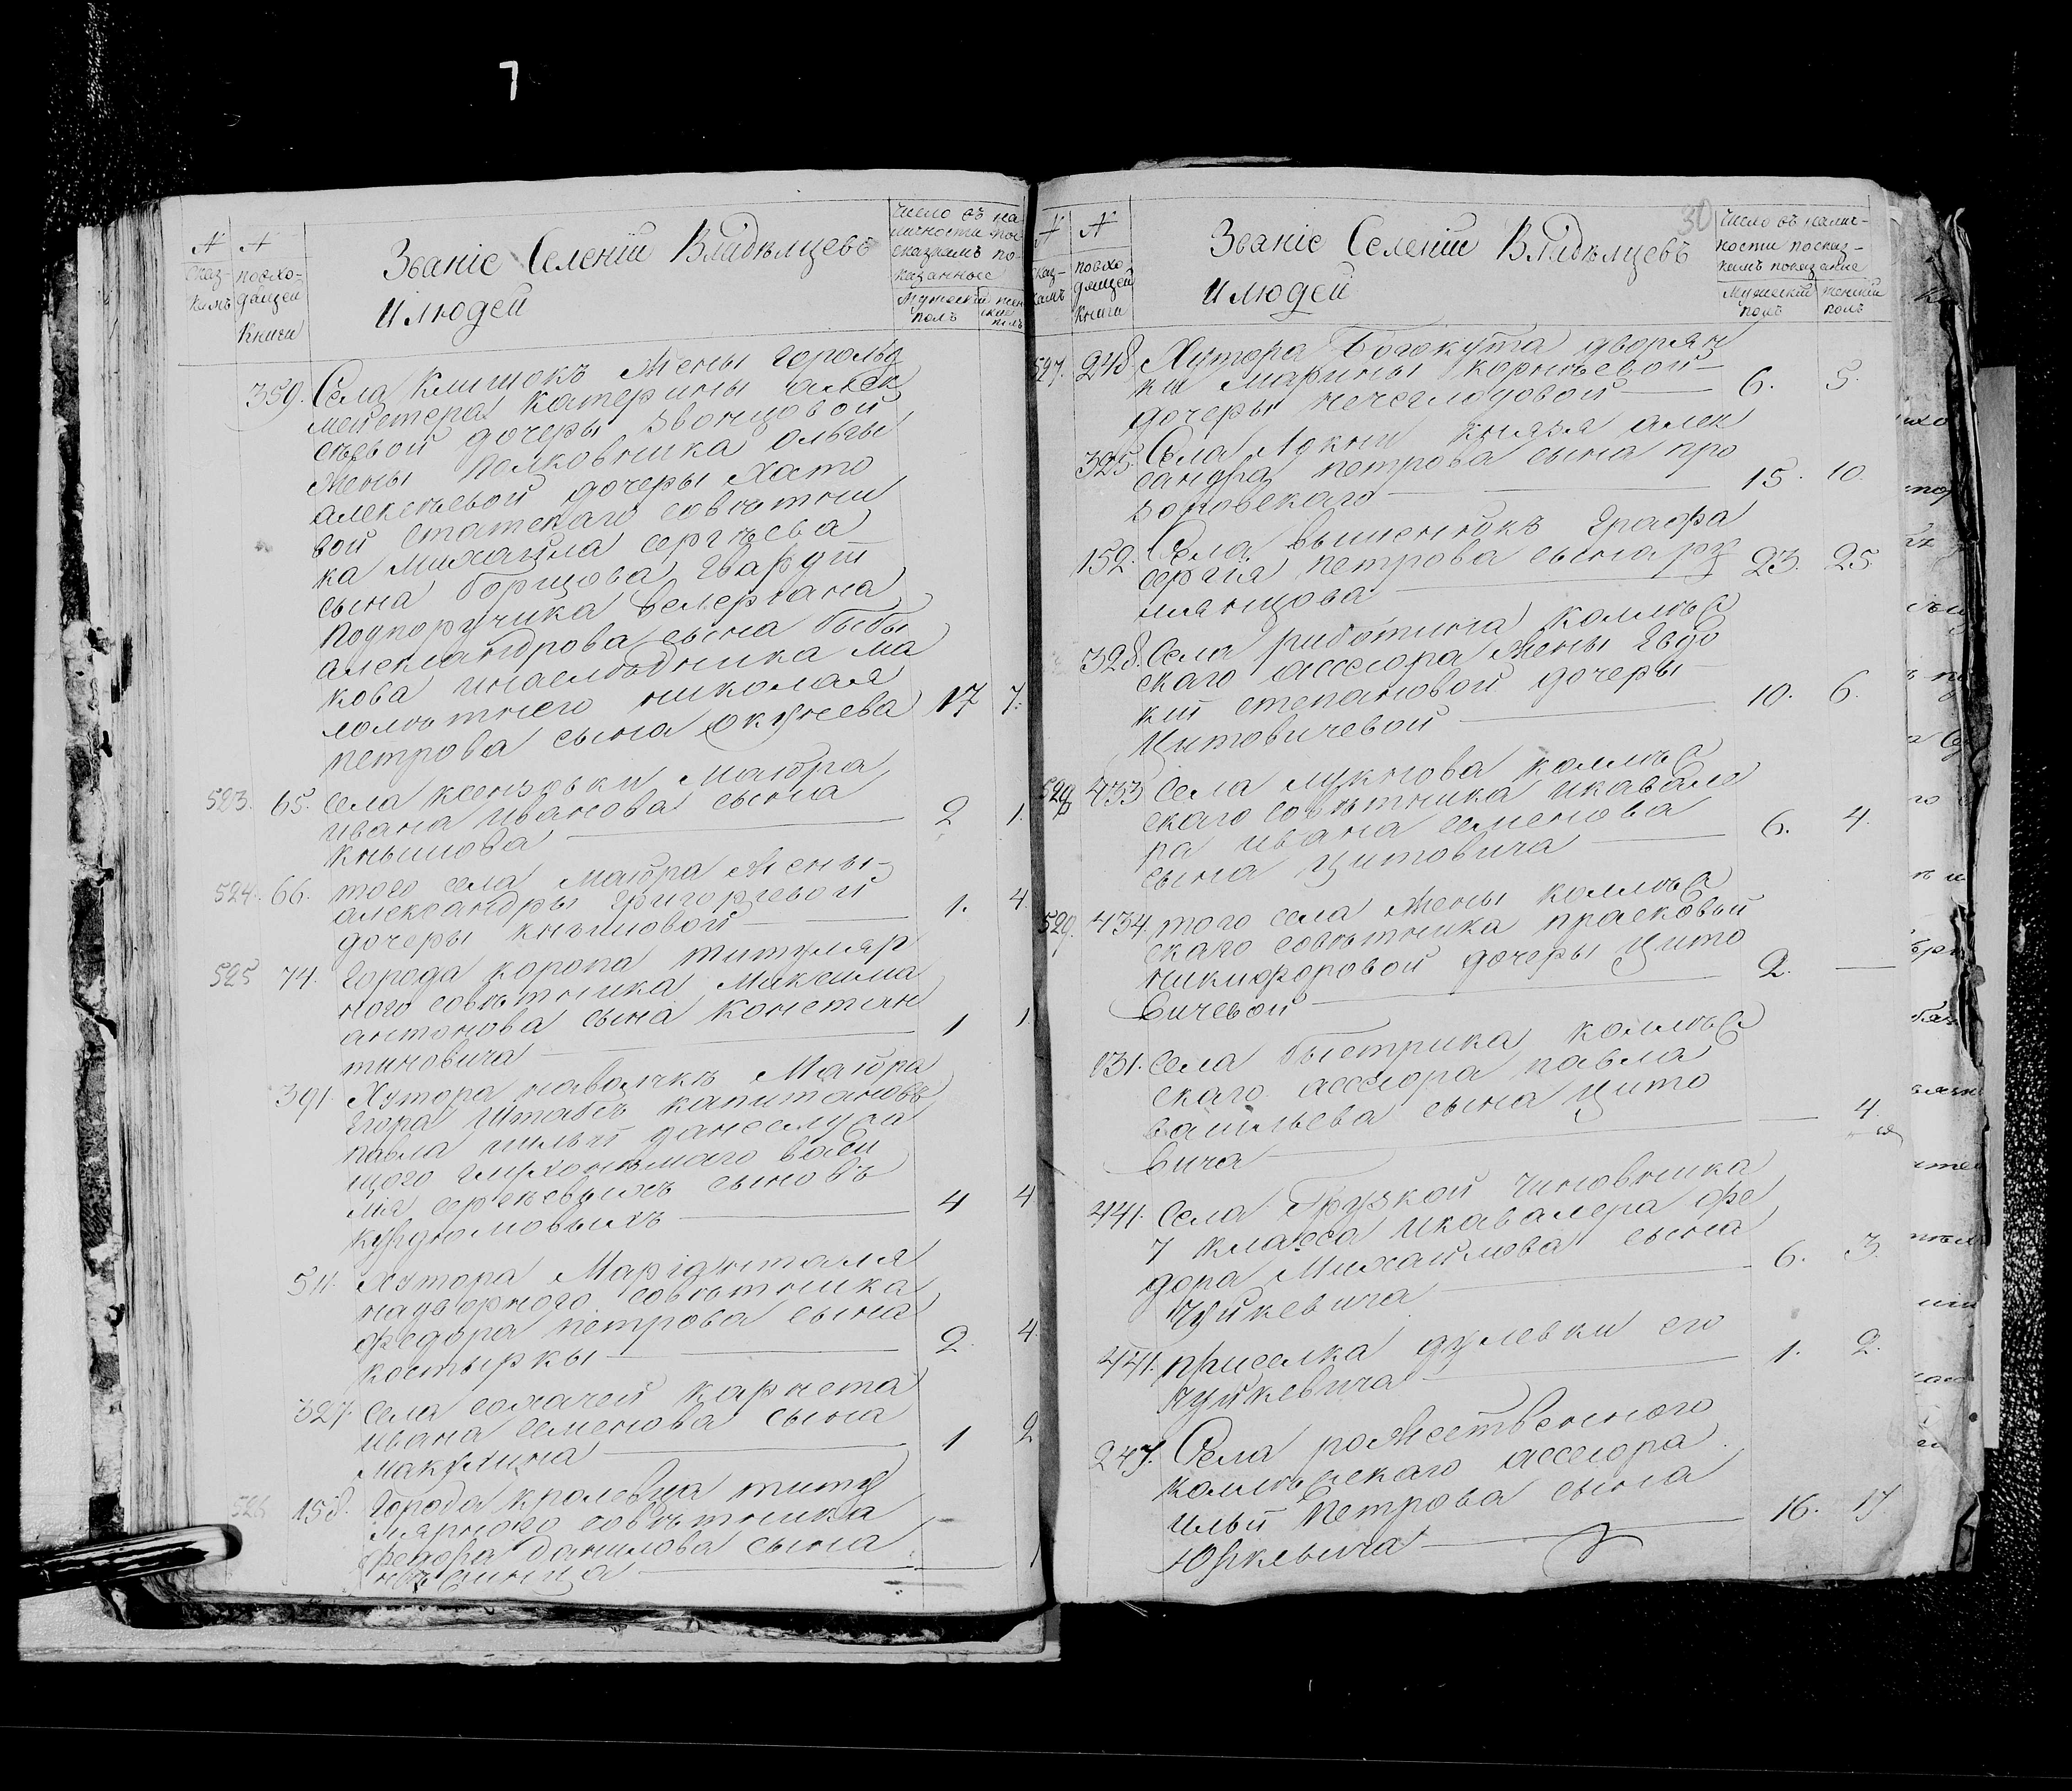 7
№ №
сказ- повхо-
камъ дящей
Книги
Званіе Селеній Владѣлцевъ
и людей
Число въ на
личности по
сказкамъ по
казанные
Мужескій жен
полъ ски
полъ
359. Села Клишокъ жены герольд
мейстера Катерины алек
сѣевой дочеры Звонцовой
Жены Полковника ольги
алексѣевой дочеры Хато
вой статскаго совѣтни
ка Михаила сергѣева
сына борщова гвардіи
подпоручика Велерiана
александрова сына быбы
кова инаслѣдника ма
лолѣтнего николая
петрова сына окунева 17 7.
523. 65. села ксендзовки маіора
ивана иванова сына
Книшова 2 1.
524. 66. того села маіора жены
александры григоріевой
дочеры книшовой 1. 4.
525 74. Города коропа титуляр
ного совѣтника Максима
антонова сына Констан
тиновича 1 1
391. Хутора наволжкъ Маіора
Егора Штабсъ капитановъ
павла ильи
щого глухонѣмаго васи
лія сергѣевыхъ сыновъ
курдюмовыхъ 4 4
54. Хутора Маріенталя
надворного совѣтника
федора петрова сына
костыркы 2. 4.
327. села сохачей карнета
ивана семенова сына
Макухина 1 2
526 158. города кролевца титу
лярного совѣтника
федора данилова сына
1
30
№ №
сказ- повхо-
камъ дящей
книги
Званіе Селеній Владѣлцевъ
и людей
Число въ налич-
ности посказ-
камъ показание
Мужескій женскій
полъ полъ
527. 248. Хутора Богокута дворян
ки Марины корнѣевой
дочеры нечеглодовой 6. 5.
325. Села Локни князя алек
сандра петрова сына про
зоровскаго 15. 10.
152. Села вишенокъ графа
сергія петрова сына ру
мянцова 23. 25
328. Села риботина коллѣс
скаго ассесора жены Евдо
кии степановой дочеры
Цитовичевой 10. 6.
528 433 села лукнова коллѣс
скаго совѣтника икавале
ра ивана семенова
сына цитовича 6. 4.
529. 434. того села жены коллѣс
скаго совѣтника прасковьи
никифоровой дочеры цито
вичевой 2. —
131. села быстрика коллѣс
скаго ассесора павла
васильева сына цито
вича — 4.
441. села Грузкой чиновника
7 класса икавалера фе
дора Михайлова сына
Чуйкевича 6. 3.
441. приселка дулевки его
чуйкевича 1. 2.
247. Села рожественного
коллѣжскаго ассесора
ильи Петрова сына
Юркевича 16. 17.